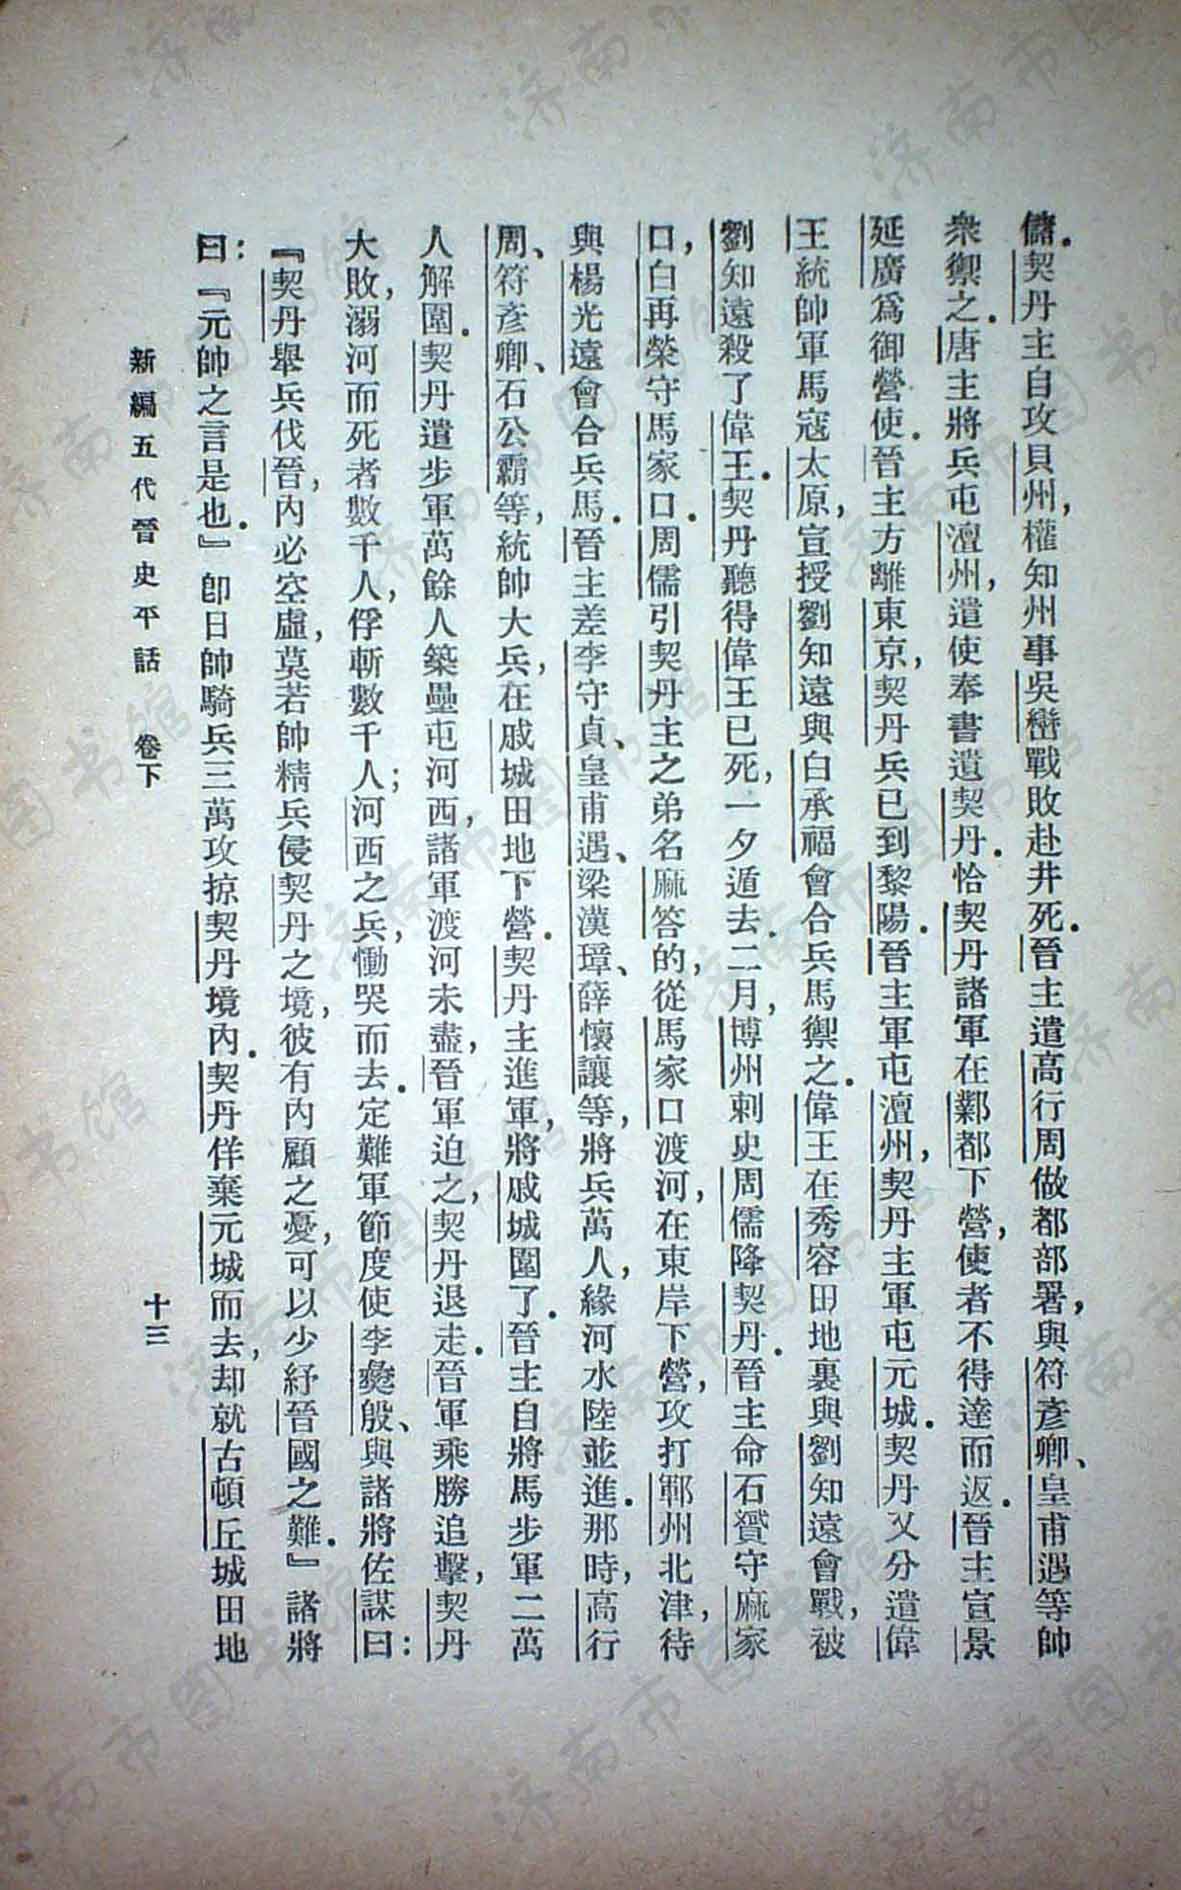 儲．契丹主自攻貝州，權知州事吳巒戰敗赴井死．晉主遣高行周做都部署，與符彥卿、皇甫遇等帥
衆禦之．唐主將兵屯澶州，遣使奉書遺契丹．恰契丹諸軍在鄴都下營，使者不得達而返．晉主宣景
延廣爲御營使．晉主方離東京，契丹兵已到黎陽．晉主軍屯澶州，契丹主軍屯元城．契丹又分遣偉
王統帥軍馬寇太原，宣授劉知遠與白承福會合兵馬禦之．偉王在秀容田地裏與劉知遠會戰，被
劉知遠殺了偉王．契丹聽得偉王已死，一夕遁去．二月，博州刺史周儒降契丹．晉主命石贇守麻家
口，白再榮守馬家口．周儒引契丹主之弟名麻答的，從馬家口渡河，在東岸下營，攻打鄆州北津，待
與楊光遠會合兵馬．晉主差李守貞、皇甫遇、梁漢璋、薛懷讓等，將兵萬人，緣河水陸並進．那時，高行
周、符彥卿、石公霸等，統帥大兵，在戚城田地下營．契丹主進軍，將戚城圍了．晉主自將馬步軍二萬
人解圍．契丹遣步軍萬餘人築壘屯河西，諸軍渡河未盡，晉軍迫之，契丹退走．晉軍乘勝追擊，契丹
大敗，溺河而死者數千人，俘斬數千人；河西之兵，慟哭而去．定難軍節度使李彝殷、與諸將佐謀曰：
『契丹舉兵伐晉，內必空虛，莫若帥精兵侵契丹之境，彼有內顧之憂，可以少紓晉國之難．』諸將
曰：『元帥之言是也．』卽日帥騎兵三萬攻掠契丹境內．契丹佯棄元城而去，却就古頓丘城田地
新編五代晉史平話　卷下　十三
济南市图书馆